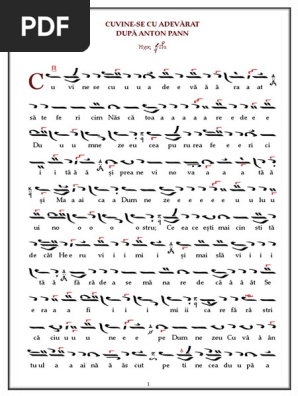 PDF
CUVINE-SE CU ADEVĂRAT
DUPĂ ANTON PANN
C u vi ne se cu u u a de e vă ă ă ra a at
să te fe ri cim Năs că toa a a a a a re e de e e
Du u u mne ze eu cea pu ru rea fe e e ri ci
i i tă ă ă și prea ne vi no va a a a tă ă
și Ma a i ca a Dum ne ze e e e e u u lu u
ui no o o o o stru; Ce e ea ce ești mai cin sti tă
de cât He e ru vi i i mi i și mai slă vi i i i
tă ă fă ră de a se mă na re de că ă ă ât Se
e ra a fi i i i mi ii ca re fă ră stri
că ciu u u u ne e e pe Dum ne zeu Cu vâ ă ân
tu ul a a ai nă ă ăs cut pe ti ne cea du u pă a
1